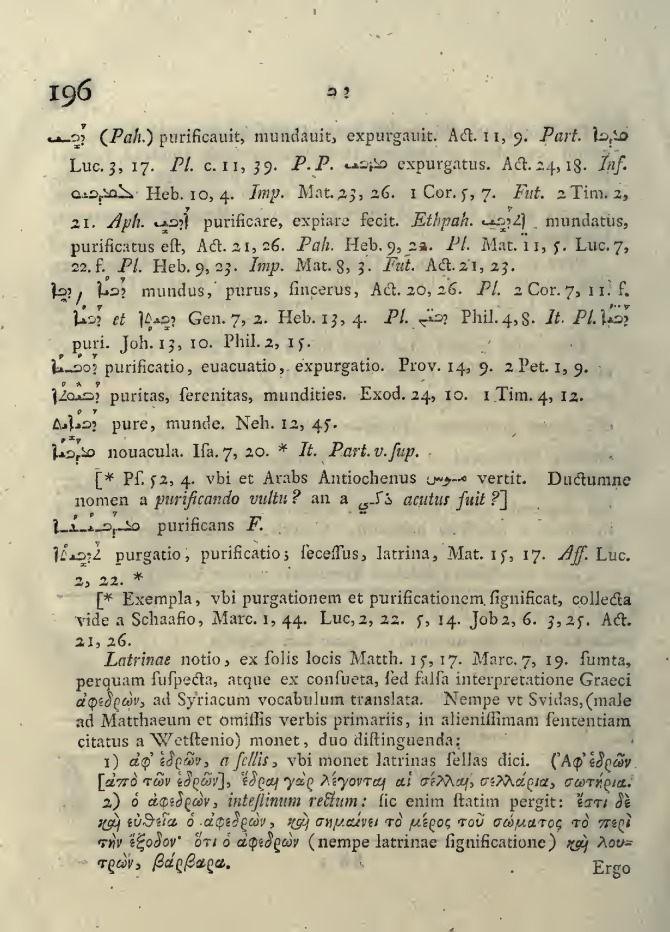 196 ܕܟ
ܕܰܟܺܝ (Pah.) purificauit, mundauit, expurgauit. Act. 11, 9. Part. ܡܕܟܐ
Luc. 3, 17. Pl. c. 11, 39. P. P. ܡܕܟܝ expurgatus. Act. 24, 18. Inf.
ܠܡܕܟܝܘ Heb. 10, 4. Imp. Mat. 23, 26. 1 Cor. 5, 7. Fut. 2 Tim. 2,
21. Aph. ܐܕܟܝ purificare, expiare fecit. Ethpah. ܐܬܕܟܝ mundatus,
purificatus eſt, Act. 21, 26. Pah. Heb. 9, 22. Pl. Mat. 11, 5. Luc. 7,
22. f. Pl. Heb. 9, 23. Imp. Mat. 8, 3. Fut. Act. 21, 23.
ܕܟܐ, ܕܟܝܐ mundus, purus, ſincerus, Act. 20, 26. Pl. 2 Cor. 7, 11. f.
ܕܟܝܐ et ܕܟܝܬܐ Gen. 7, 2. Heb. 13, 4. Pl. ܕܟܝܢ Phil. 4, 8. It. Pl. ܕܟܝܐ
puri. Joh. 13, 10. Phil. 2, 15.
ܕܘܟܝܐ purificatio, euacuatio, expurgatio. Prov. 14, 9. 2 Pet. 1, 9.
ܕܟܝܘܬܐ puritas, ſerenitas, mundities. Exod. 24, 10. 1 Tim. 4, 12.
ܕܟܝܐܝܬ pure, munde. Neh. 12, 45.
ܡܕܟܝܐ nouacula. Iſa. 7, 20. * It. Part. v. ſup.
[* Pſ. 52, 4. vbi et Arabs Antiochenus موسى vertit. Ductumne
nomen a purificando vultu? an a ذكى acutus fuit?]
ܡܕܟܝܢܐ purificans F.
ܬܕܟܝܬܐ purgatio, purificatio; ſeceſſus, latrina, Mat. 15, 17. Aff. Luc.
2, 22. *
[* Exempla, vbi purgationem et purificationem ſignificat, collecta
vide a Schaafio, Marc. 1, 44. Luc, 2, 22. 5, 14. Job 2, 6. 3, 25. Act.
21, 26.
Latrinae notio, ex ſolis locis Matth. 15, 17. Marc. 7, 19. ſumta,
perquam ſuſpecta, atque ex conſueta, ſed falſa interpretatione Graeci
ἀφεδρών, ad Syriacum vocabulum translata. Nempe vt Svidas, (male
ad Matthaeum et omiſſis verbis primariis, in alieniſſimam ſententiam
citatus a Wetſtenio) monet, duo diſtinguenda:
1) ἀφ' ἑδρῶν, a ſellis, vbi monet latrinas ſellas dici. (Ἀφ' ἑδρῶν
[ἀπὸ τῶν ἑδρῶν], ἕδραι γὰρ λέγονται αἱ σέλλαι, σελλάρια, σωτήρια.
2) ὁ ἀφεδρὼν, inteſtinum rectum: ſic enim ſtatim pergit: ἔστι δὲ
καὶ εὐθεῖα ὁ ἀφεδρὼν, καὶ σημαίνει τὸ μέρος τοῦ σώματος τὸ περὶ
τὴν ἔξοδον· ὅτι ὁ ἀφεδρὼν (nempe latrinae ſignificatione) καὶ λου=
τρὼν, βάρβαρα.
Ergo